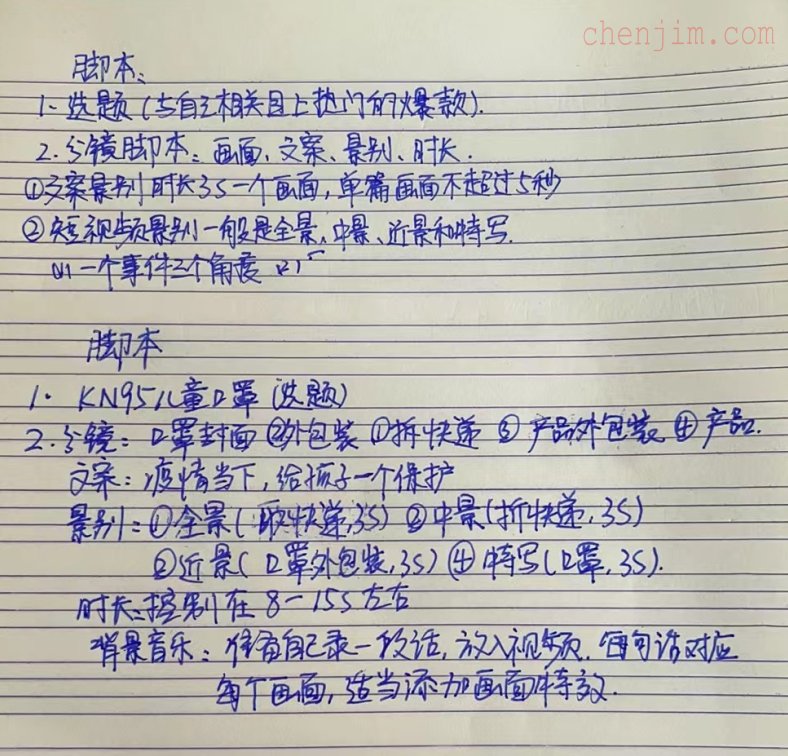 chenjim.com
脚本:
1. 选题(与自己相关且上热门的爆款).
2. 分镜脚本:画面、文案、景别、时长.
①文案景别时长3S一个画面,单篇画面不超过5秒
②短视频景别一般是全景、中景、近景和特写.
(1)一个事件三个角度 (2)
脚本
1. KN95儿童口罩(选题)
2.分镜:口罩封面 ②外包装 ①拆快递 ③产品外包装 ④产品.
文案:疫情当下,给孩子一个保护
景别:①全景(取快递,3S) ②中景(拆快递,3S)
③近景(口罩外包装,3S) ④特写(口罩,3S).
时长:控制在8-15S左右
背景音乐:准备自己录一段话,放入视频.每句话对应
每个画面,适当添加画面特效.